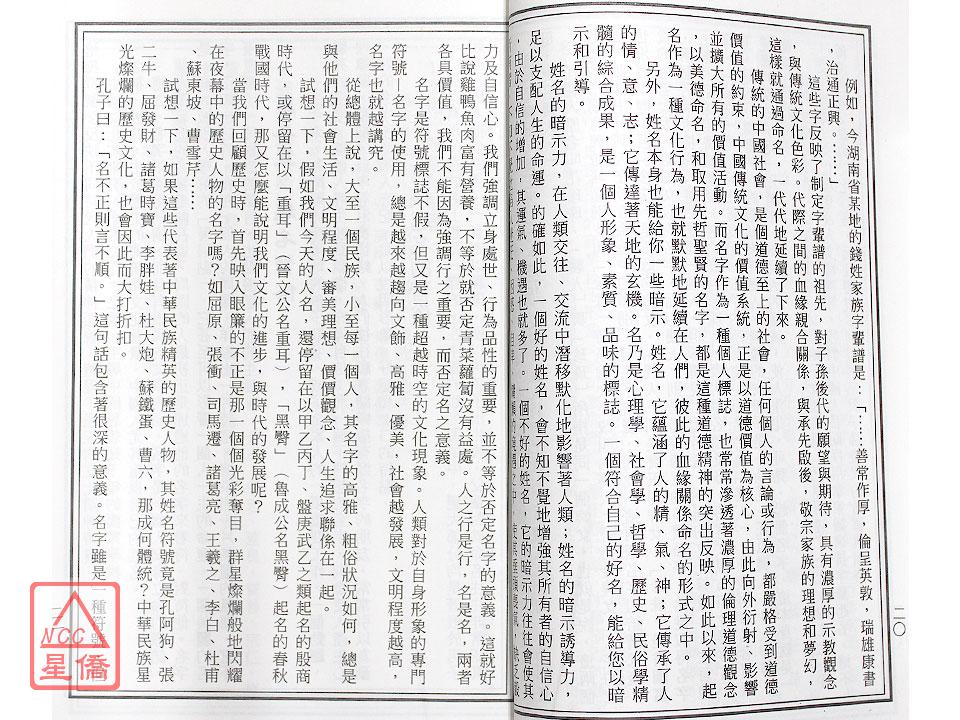 例如，今湖南省某地的錢姓家族字輩譜是：「……善常作厚，倫呈英敦，瑞雄康書
，治通正興。……」
這些字反映了制定字輩譜的祖先，對子孫後代的願望與期待，具有濃厚的示教觀念
，與傳統文化色彩。代際之間的血緣親合關係，與承先啟後，敬宗家族的理想和夢幻，
這樣就通過命名，一代代地延續了下來。
傳統的中國社會，是個道德至上的社會，任何個人的言論或行為，都嚴格受到道德
價值的約束，中國傳統文化的價值系統，正是以道德價值為核心，由此向外衍射、影響
並擴大所有的價值活動。而名字作為一種個人標誌，也常常滲透著濃厚的倫理道德觀念
，以美德命名，和取用先哲聖賢的名字，都是這種道德精神的突出反映。如此以來，起
名作為一種文化行為，也就默默地延續在人們，彼此的血緣關係命名的形式之中。
另外，姓名本身也能給你一些暗示。姓名，它蘊涵了人的情、氣、神；它傳承了人
的情、意、志；它傳達著天地的玄機。名乃是心理學、社會學、哲學、歷史、民俗學精
髓的綜合成果，是一個人形象、素質、品味的標誌。一個符合自己的好名，能給您以暗
示和引導。
姓名的暗示力，在人類交往、交流中潛移默化地影響著人類；姓名的暗示誘導力，
足以支配人生的命運。的確如此，一個好的姓名，會不知不覺地增強其所有者的自信心
，由於自信的增加，其運氣、機遇也就多了。一個不好的姓名，它的暗示力往往會使其
力及自信心。我們強調立身處世、行為品性的重要，並不等於否定名字的意義。這就好
比說雞鴨魚肉富有營養，不等於就否定青菜蘿蔔沒有益處。人之行是行，名是名，兩者
各具價值，我們不能因為強調行之重要，而否定名之意義。
名字是符號標誌不假，但又是一種超越時空的文化現象。人類對於自身形象的專門
符號—名字的使用，總是越來越趨向文飾、高雅、優美，社會越發展，文明程度越高，
名字也就越講究。
從總體上說，大至一個民族，小至每一個人，其名字的高雅、粗俗狀況如何，總是
與他們的社會生活、文明程度、審美理想、價價觀念、人生追求聯係在一起。
試想一下，假如我們今天的人名，還停留在以甲乙丙丁、盤庚武乙之類起名的殷商
時代，或停留在以「重耳」（晉文公名重耳），「黑臀」（魯成公名黑臀）起名的春秋
戰國時代，那又怎麼能說明我們文化的進步，與時代的發展呢？
當我們回顧歷史時，首先映入眼簾的不正是那一個個光彩奪目，群星燦爛般地閃耀
在夜幕中的歷史人物的名字嗎？如屈原、張衡、司馬遷、諸葛亮、王羲之、李白、杜甫
、蘇東坡、曹雪芹……
試想一下，如果這些代表著中華民族精英的歷史人物，其姓名符號竟是孔阿狗、張
二牛、屈發財、諸葛時寶、李胖娃、杜大炮、蘇鐵蛋、曹六，那成何體統？中華民族星
光燦爛的歷史文化，也會因此而大打折扣。
孔子曰：「名不正則言不順。」這句話包含著很深的意義。名字雖是一種符號
二〇
NCC
星僑